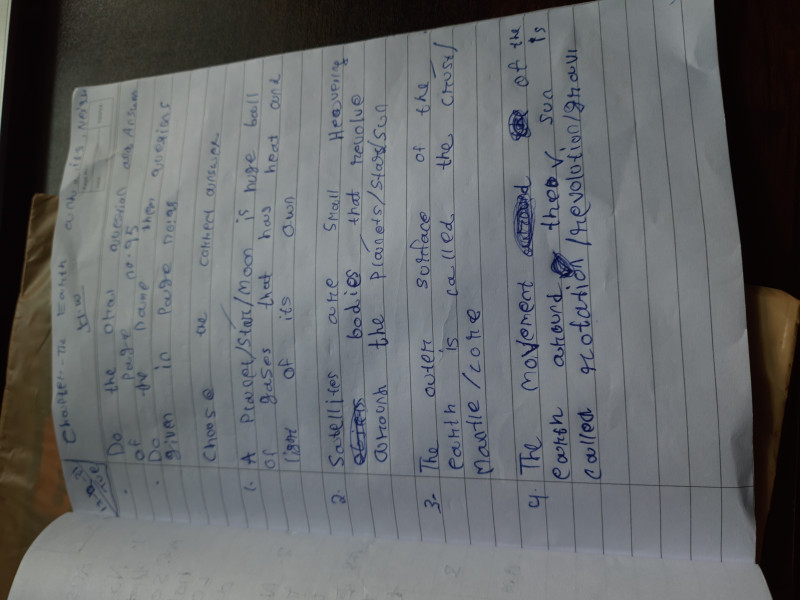 Chapter:- The Earth and its
H.W
Do the oral question and Answer
of Page no. 95
Do the Name then questions
given in Page no.95
Choose the correct answer
1. A Planet/Star/Moon is huge ball
of gases that has heat and
light of its own
2. Satellites are small Heavenly
bodies that revolve
around the Planets/Stars/Sun
3. The outer surface of the
earth is called the crust/
Mantle/core
4. The movement of the
earth around the sun is
called rotation/revolution/gravi